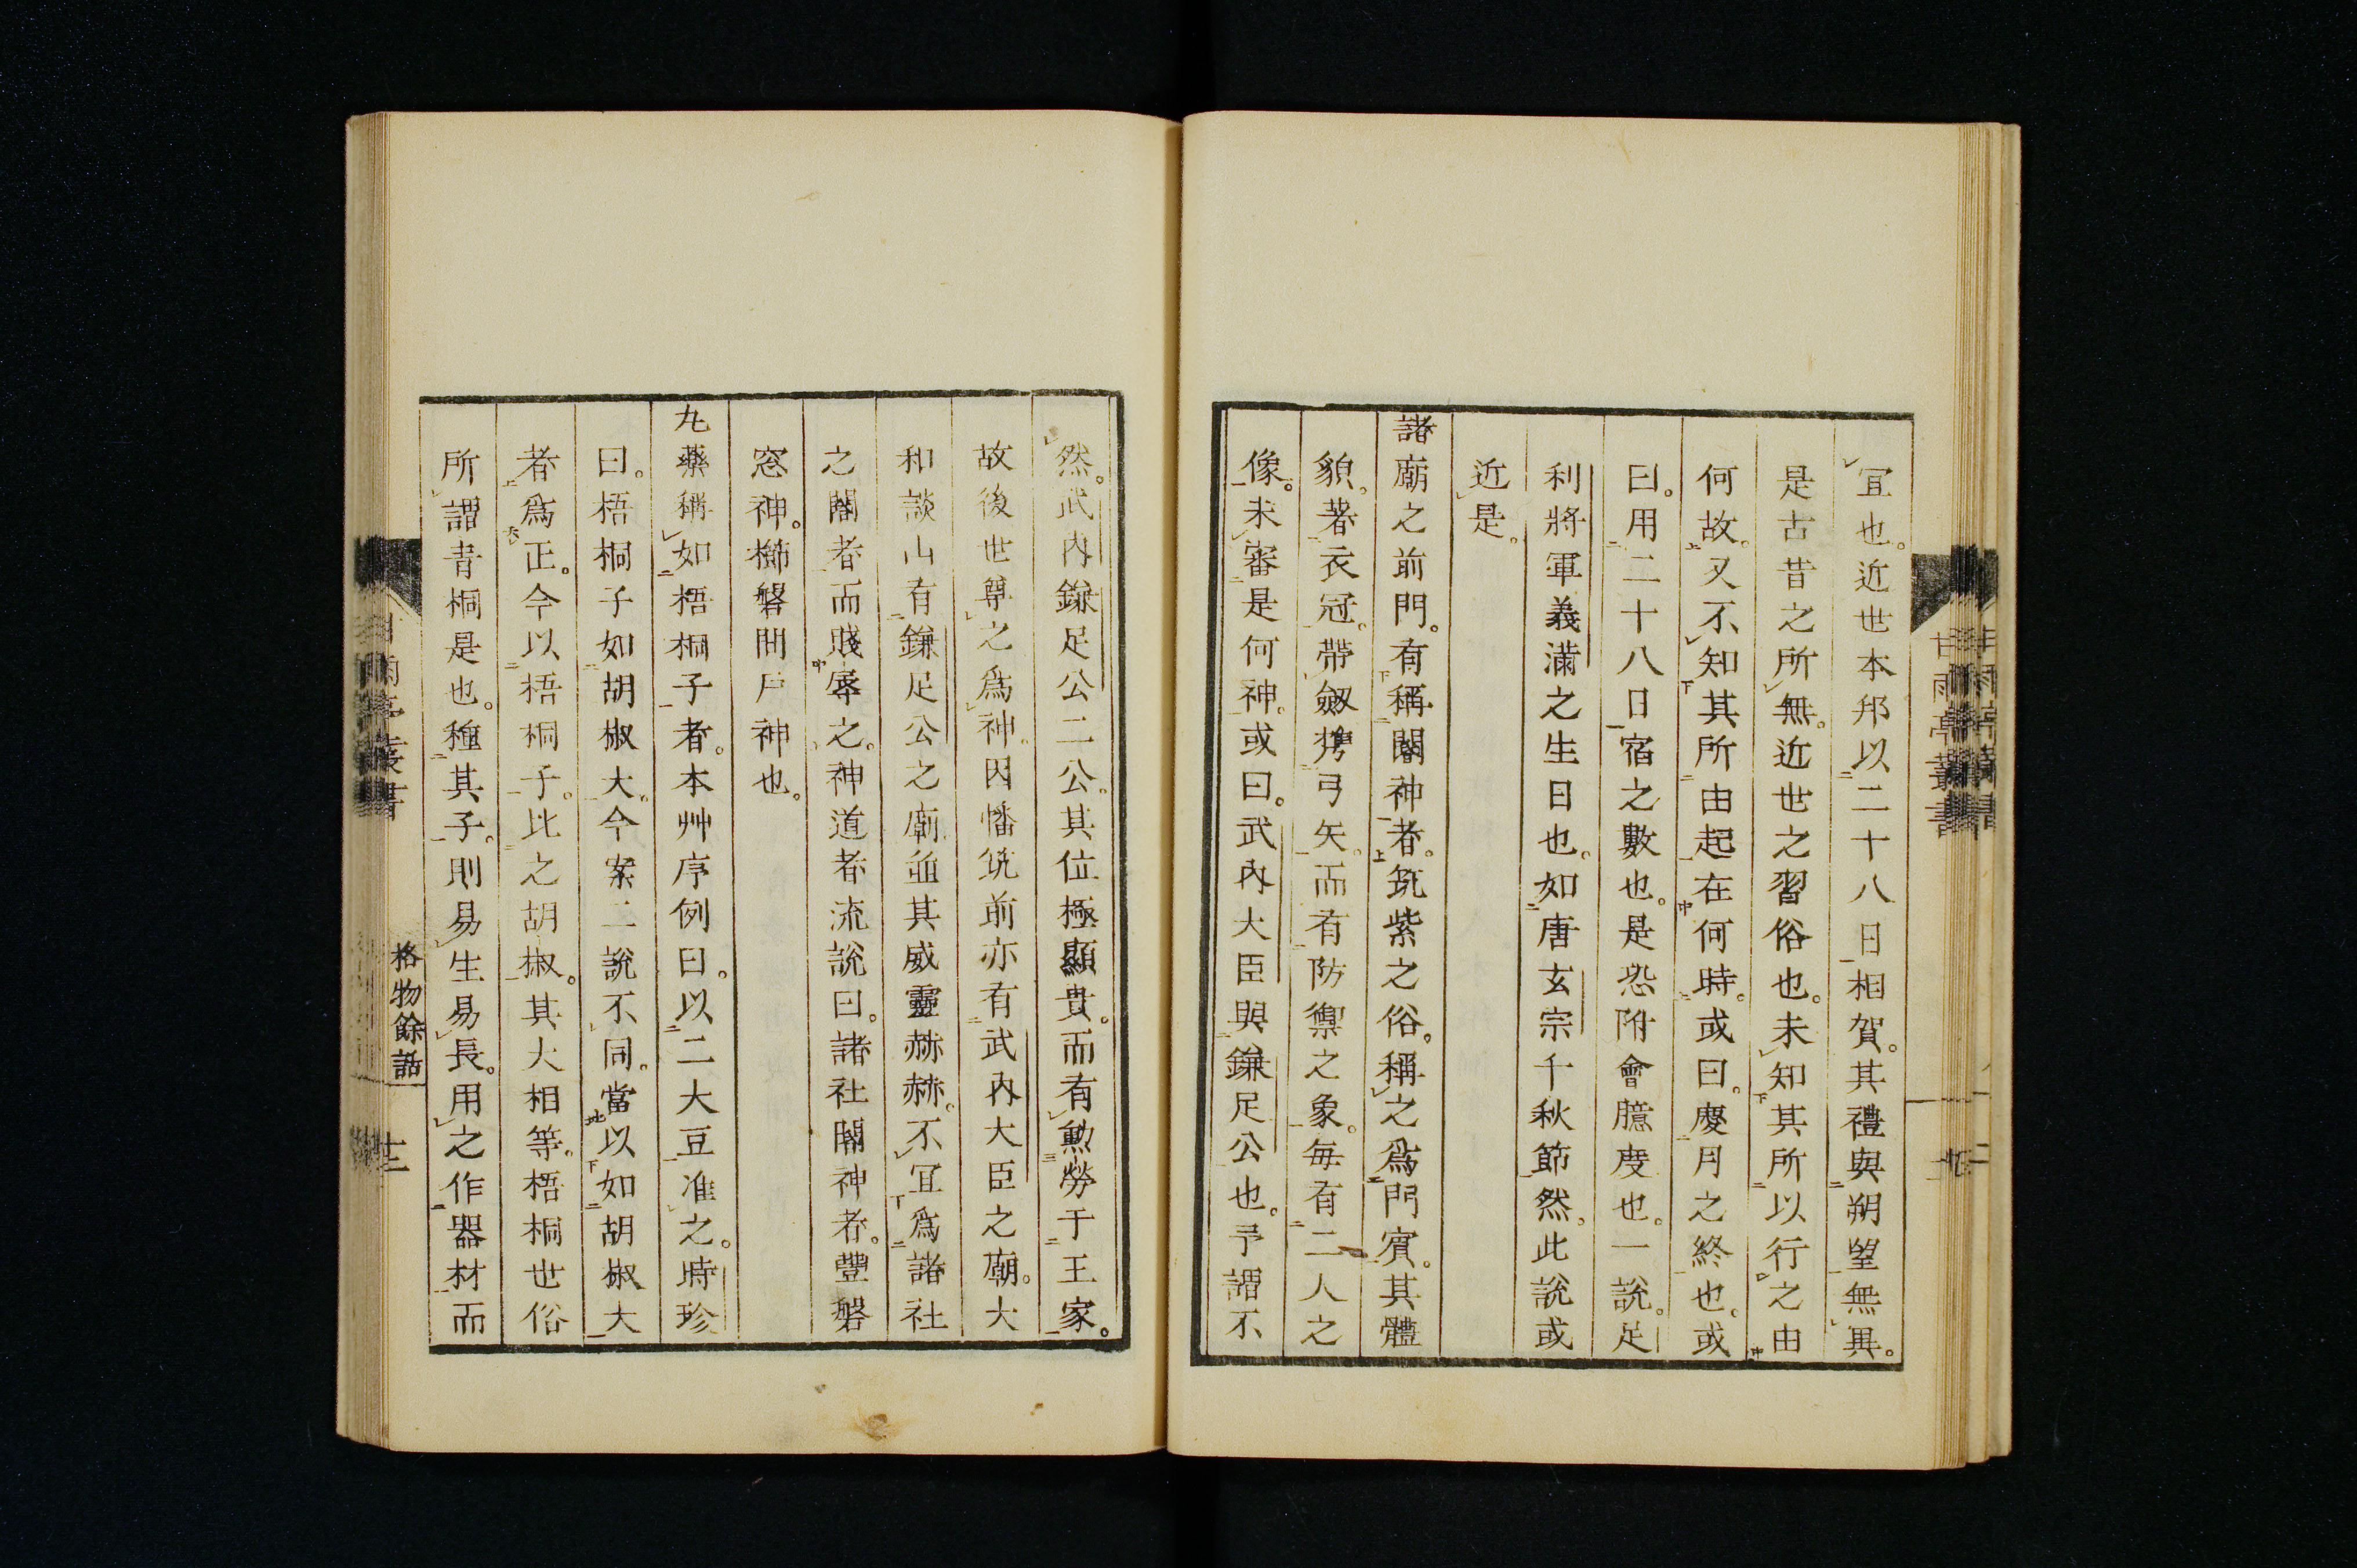 宜也。近世本邦以二十八日相賀。其禮與朔望無異。
是古昔之所無。近世之習俗也。未知其所以行之由
何故。又不知其所由起在何時。或曰。慶月之終也。或
曰。用二十八日宿之數也。是恐附會臆度也。一說。足
利將軍義滿之生日也。如唐玄宗千秋節然。此說或
近是。
諸廟之前門。有稱閽神者。筑紫之俗。稱之爲門賓。其體
貌。著衣冠。帶劔携弓矢。而有防禦之象。每有二人之
像。未審是何神。或曰。武內大臣與鎌足公也。予謂不
然。武內鎌足公二公。其位極顯貴。而有勲勞于王家。
故後世尊之爲神。因幡筑前亦有武內大臣之廟。大
和談山有鎌足公之廟。並其威靈赫赫。不宜爲諸社
之閽者而賤辱之。神道者流說曰。諸社閽神者。豐磐
窓神。櫛磐間戶神也。
丸藥稱如梧桐子者。本艸序例曰。以二大豆准之。時珍
曰。梧桐子如胡椒大。今案二說不同。當以如胡椒大
者爲正。今以梧桐子。比之胡椒。其大相等。梧桐世俗
所謂青桐是也。種其子。則易生易長。用之作器材而
甘雨亭叢書
格物餘話